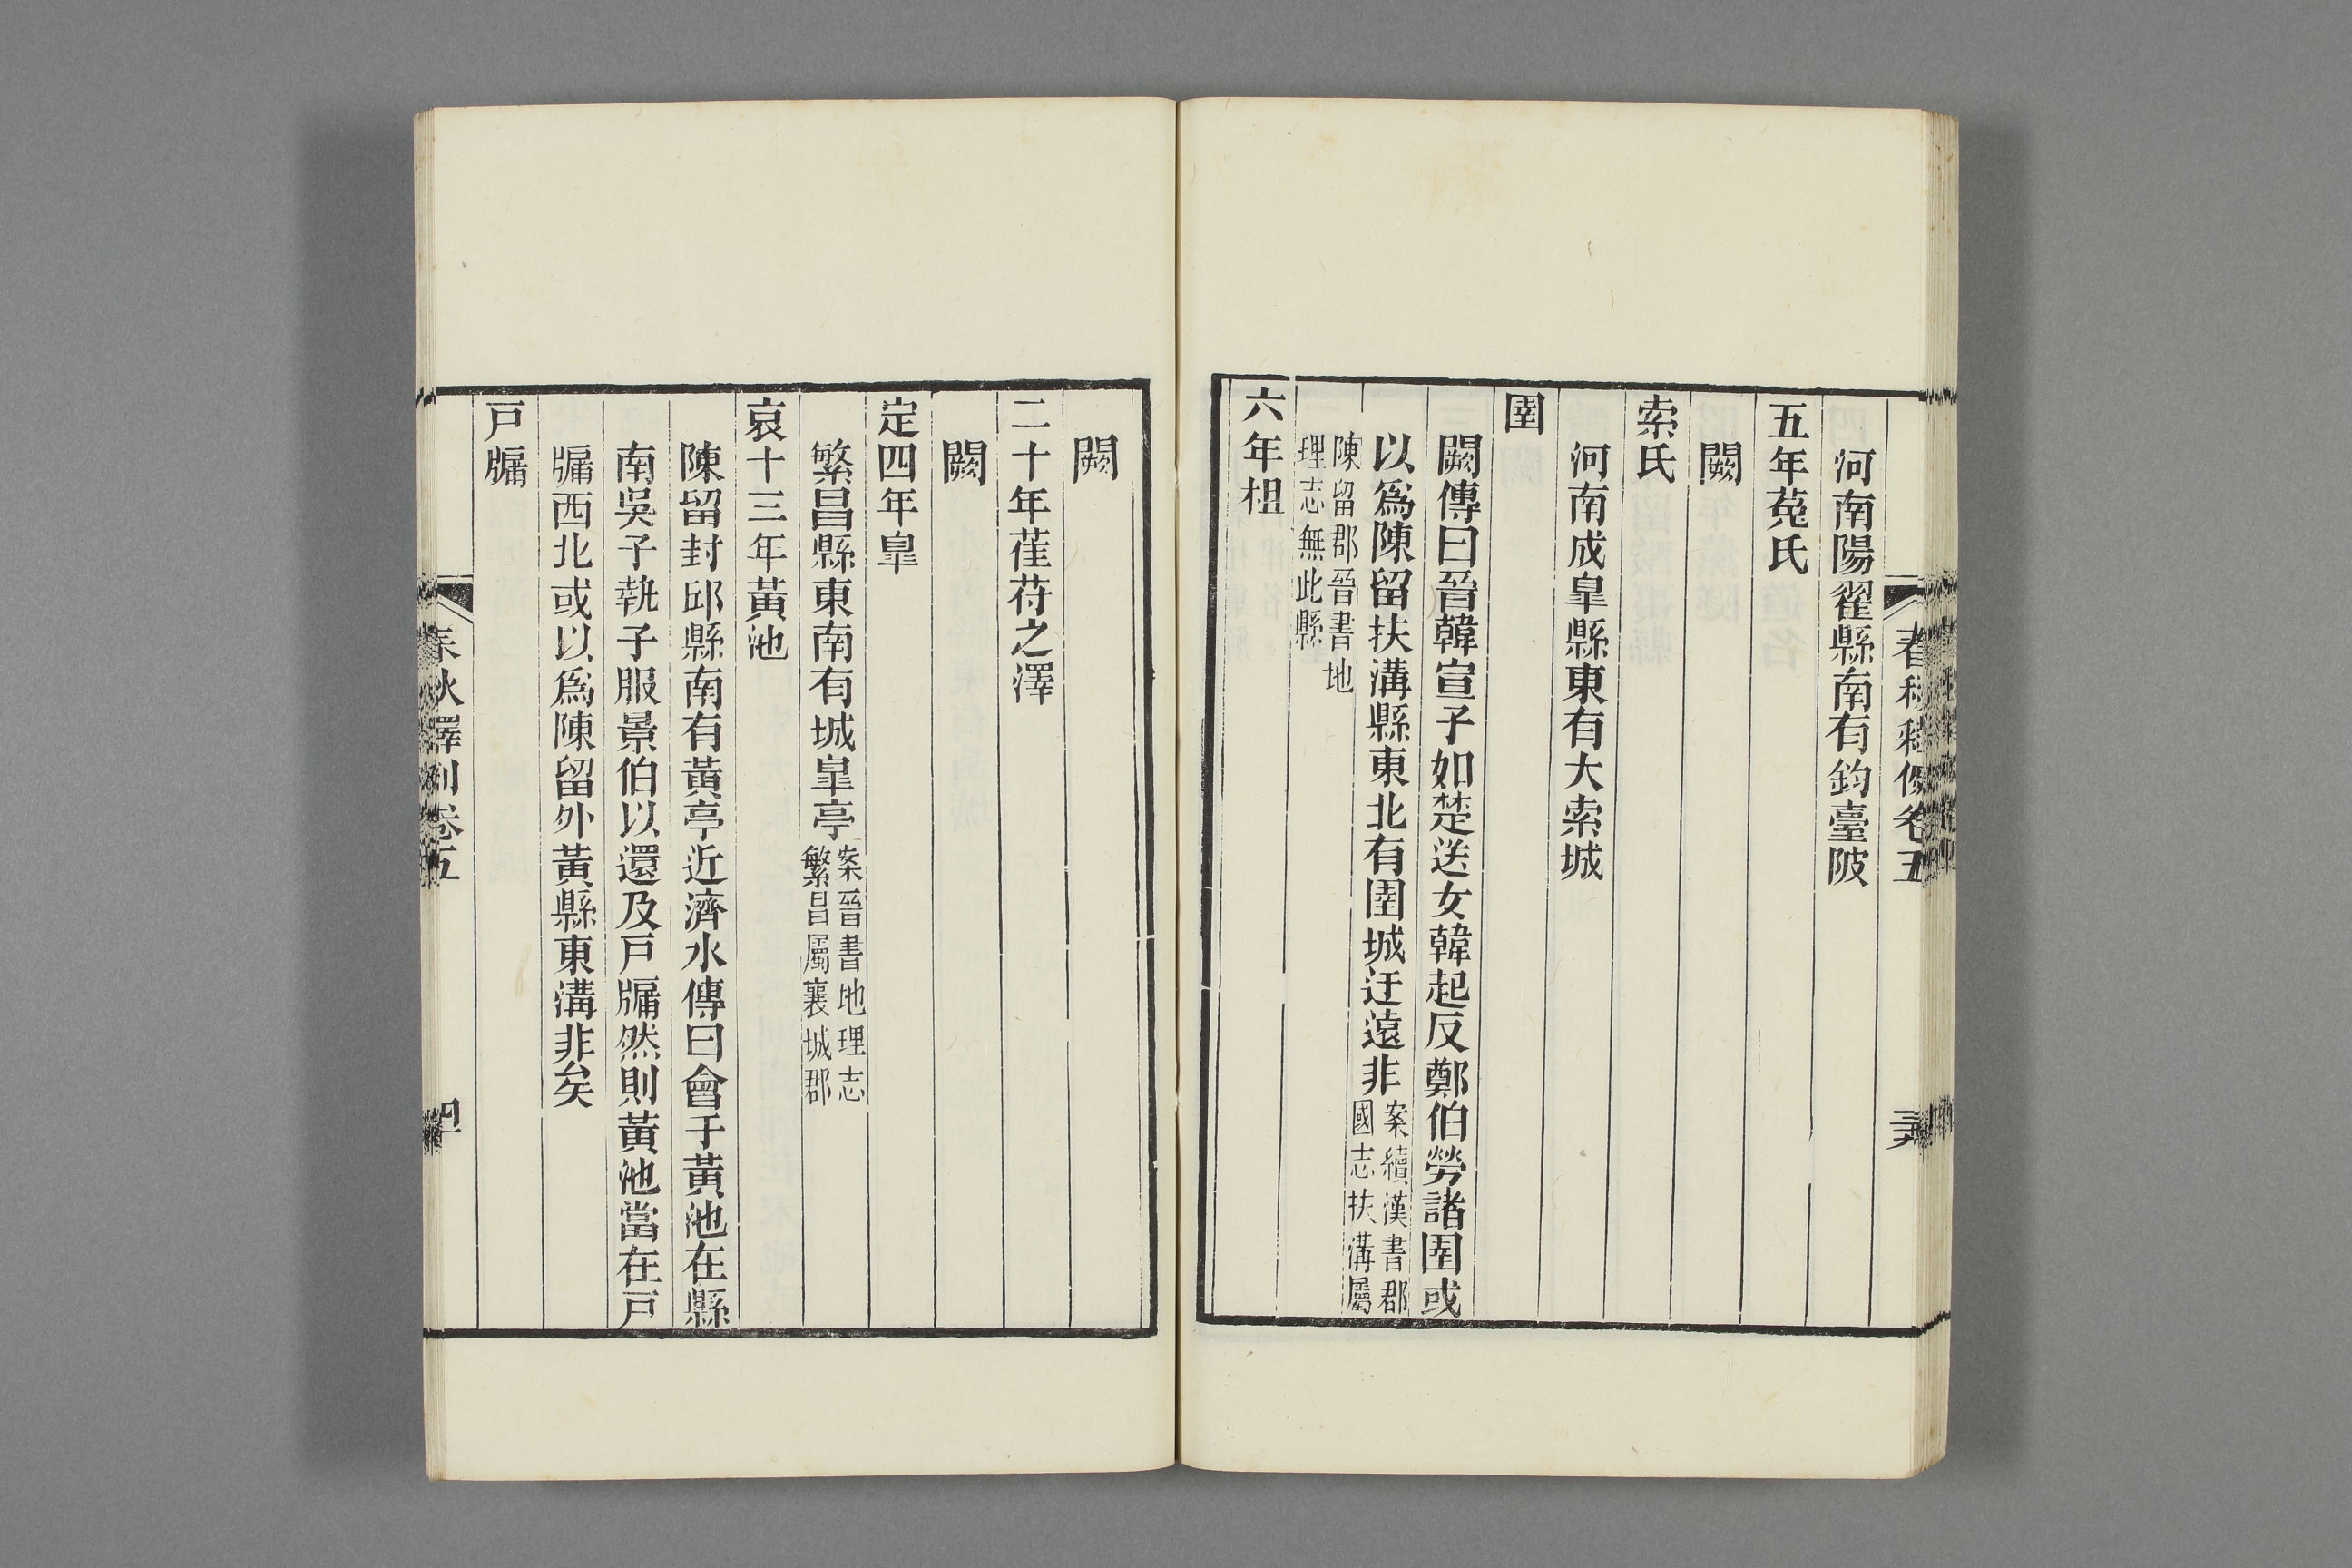 河南陽翟縣南有鈞臺陂
五年菟氏
闕
索氏
河南成皐縣東有大索城
圉
闕傳曰晉韓宣子如楚送女韓起反鄭伯勞諸圉或
以爲陳留扶溝縣東北有圉城迂遠非案續漢書郡國志扶溝屬
陳留郡晉書地理志無此縣
六年柤
闕
二十年萑苻之澤
闕
定四年皐
繁昌縣東南有城皐亭案晉書地理志繁昌屬襄城郡
哀十三年黃池
陳留封邱縣南有黃亭近濟水傳曰會于黃池在縣
南吳子執子服景伯以還及戸牖然則黃池當在戸
牖西北或以爲陳留外黃縣東溝非矣
戸牖
春秋釋例卷五